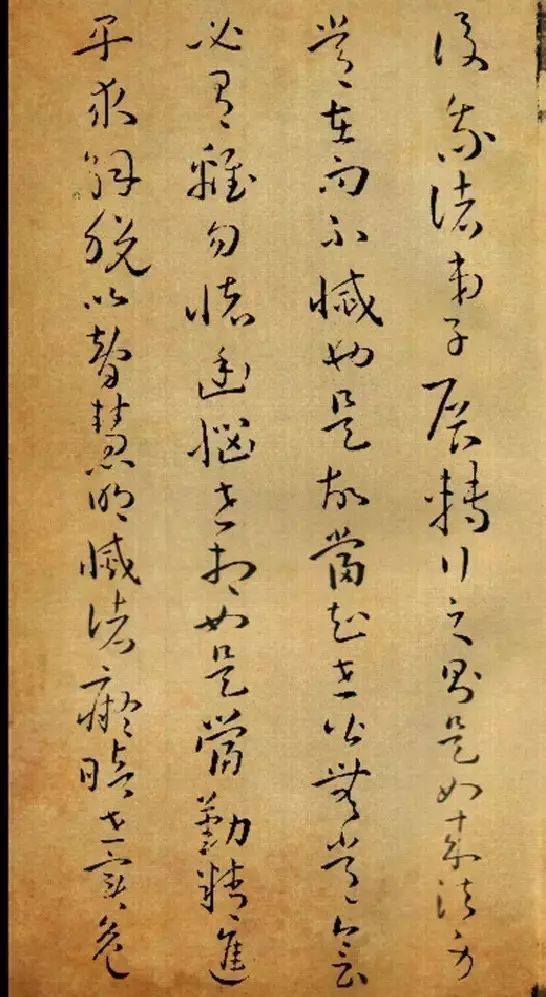 後我諸弟子展轉行之則是如來法身
常在而不滅也是故當知世皆無常會
必有離勿懷憂惱世相如是當勤精進
早求解脫以智慧明滅諸癡暗世實危